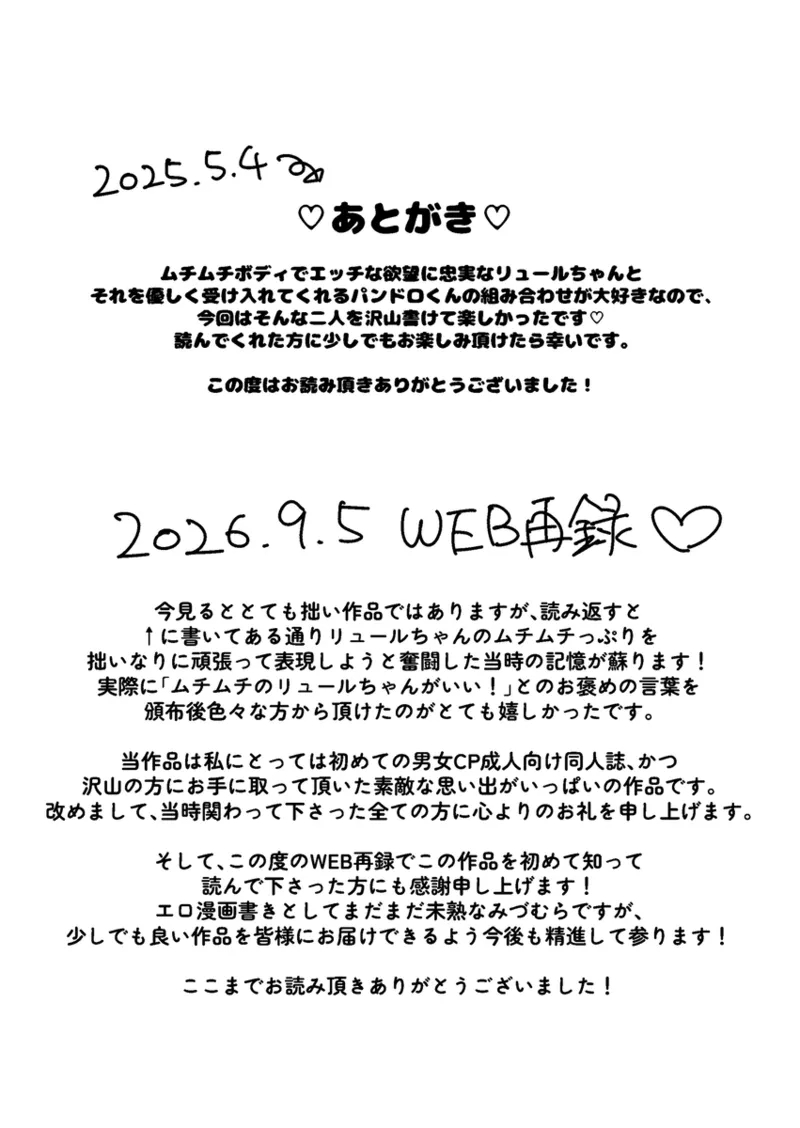 2025.5.4
♡あとがき♡
ムチムチボディでエッチな欲望に忠実なリュールちゃんと
それを優しく受け入れてくれるパンドロくんの組み合わせが大好きなので、
今回はそんな二人を沢山書けて楽しかったです♡
読んでくれた方に少しでもお楽しみ頂けたら幸いです。
この度はお読み頂きありがとうございました！
2026.9.5 WEB再録♡
今見るととても拙い作品ではありますが、読み返すと
↑に書いてある通りリュールちゃんのムチムチっぷりを
拙いなりに頑張って表現しようと奮闘した当時の記憶が蘇ります！
実際に「ムチムチのリュールちゃんがいい！」とのお褒めの言葉を
頒布後色々な方から頂けたのがとても嬉しかったです。
当作品は私にとっては初めての男女CP成人向け同人誌、かつ
沢山の方にお手に取って頂いた素敵な思い出がいっぱいの作品です。
改めまして、当時関わって下さった全ての方に心よりのお礼を申し上げます。
そして、この度のWEB再録でこの作品を初めて知って
読んで下さった方にも感謝申し上げます！
エロ漫画書きとしてまだまだ未熟なみづむらですが、
少しでも良い作品を皆様にお届けできるよう今後も精進して参ります！
ここまでお読み頂きありがとうございました！